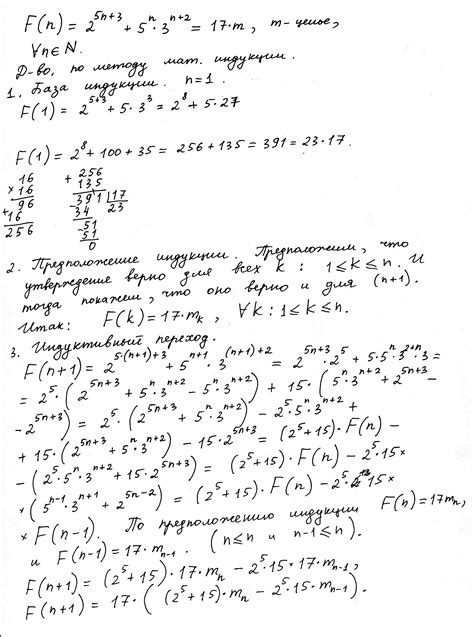 F(n) = 2^{5n+3} + 5^n · 3^{n+2} = 17·m, m-целые,
∀n∈ℕ.
Д-во. по методу мат. индукции.
1. База индукции. n=1.
F(1) = 2^{5+3} + 5·3^3 = 2^8 + 5·27
F(1) = 2^8 + 100 + 35 = 256 + 135 = 391 = 23·17.
16
×16
96
+16
256
+256
135
391 |17
-34 23
-51
51
0
2. Предположение индукции. Предположим, что
утверждение верно для всех k: 1≤k≤n. И
тогда покажем, что оно верно и для (n+1).
Итак: F(k) = 17·m_k, ∀k: 1≤k≤n.
3. Индуктивный переход.
F(n+1) = 2^{5·(n+1)+3} + 5^{n+1} · 3^{(n+1)+2} = 2^{5n+3}·2^5 + 5·5^n·3^{2+n}·3 =
= 2^5·(2^{5n+3} + 5^n·3^{n+2} - 5^n·3^{n+2}) + 15·(5^n·3^{n+2} + 2^{5n+3} -
- 2^{5n+3}) = 2^5·(2^{5n+3} + 5^n·3^{n+2}) - 2^5·5^n·3^{n+2} +
+ 15·(2^{5n+3} + 5^n·3^{n+2}) - 15·2^{5n+3} = (2^5+15)·F(n) -
- (2^5·5^n·3^{n+2} + 15·2^{5n+3}) = (2^5+15)·F(n) - 2^5·15×
×(5^{n-1}·3^{n+1} + 2^{5n-2}) = (2^5+15)·F(n) - 2^5·15×
×F(n-1). По предположению индукции F(n)=17m_n,
и F(n-1) = 17·m_{n-1}. (n≤n и n-1≤n).
F(n+1) = (2^5+15)·17·m_n - 2^5·15·17·m_{n-1},
F(n+1) = 17·((2^5+15)·m_n - 2^5·15·m_{n-1}).